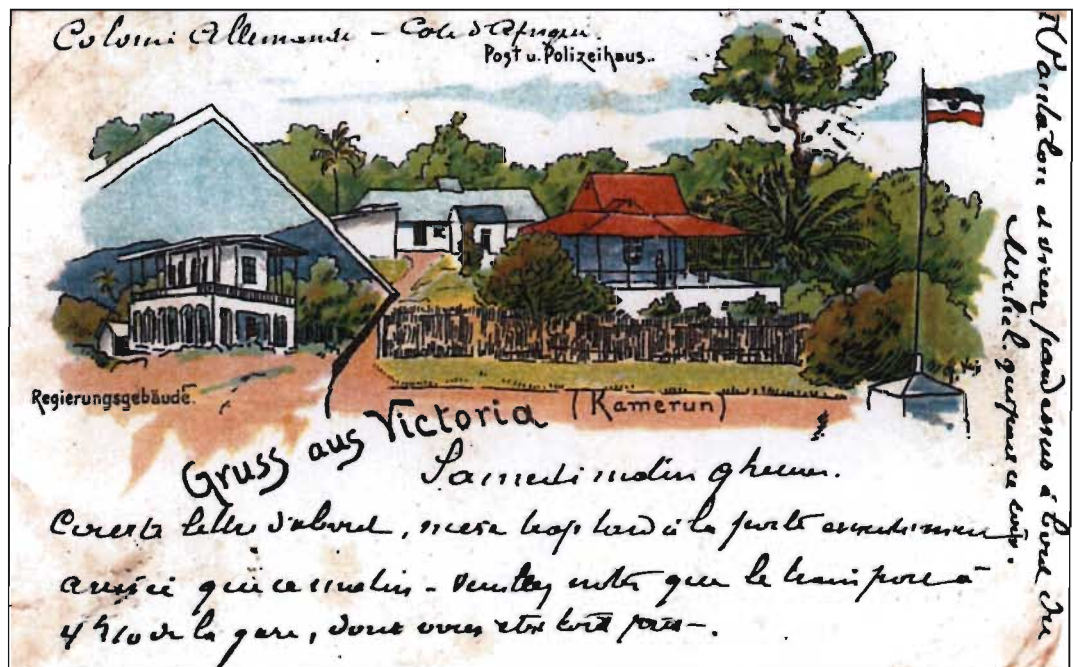 Colonie Allemande - Cote d'Afrique.
Post u. Polizeihaus..
Regierungsgebäude.
Gruss aus Victoria (Kamerun)
Samedi matin 9 heures.
lettre d'abord, trop tard à la poste
arrivée que ce matin - veuillez noter que le train part à
4h10 de la gare, dont vous etes tout près-.
Pantalon et vieux pardessus à bord du
ce soir.